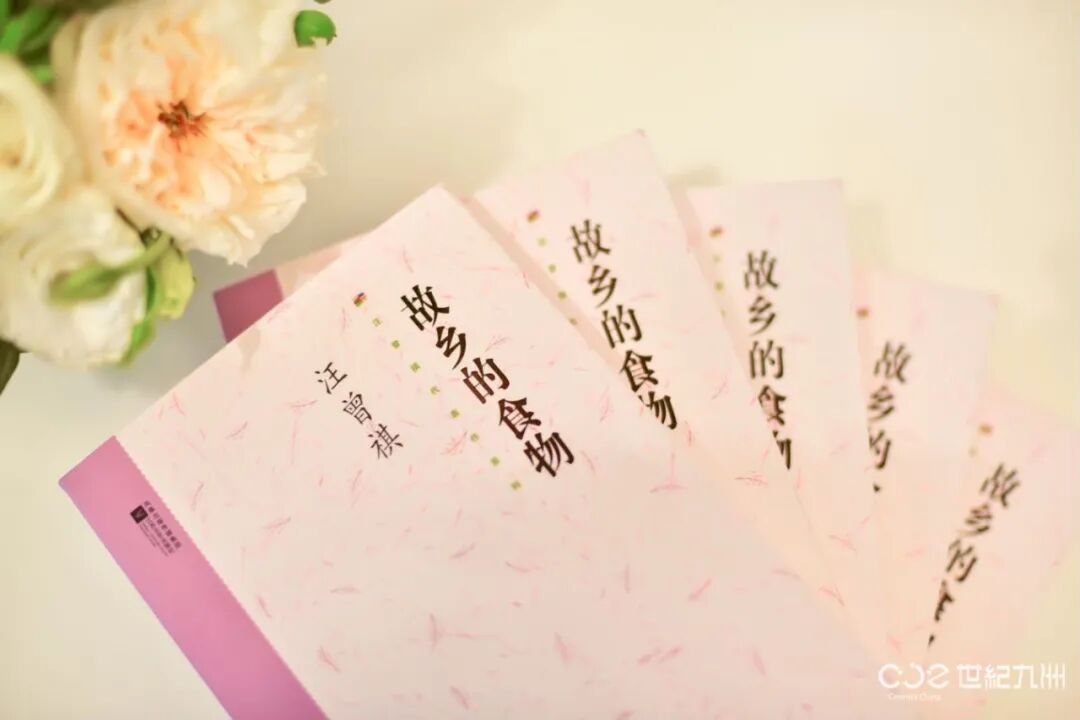 故乡的食物
汪曾祺
故乡的食物
故乡的食物
故乡的
故乡的食
CJE 世纪九州